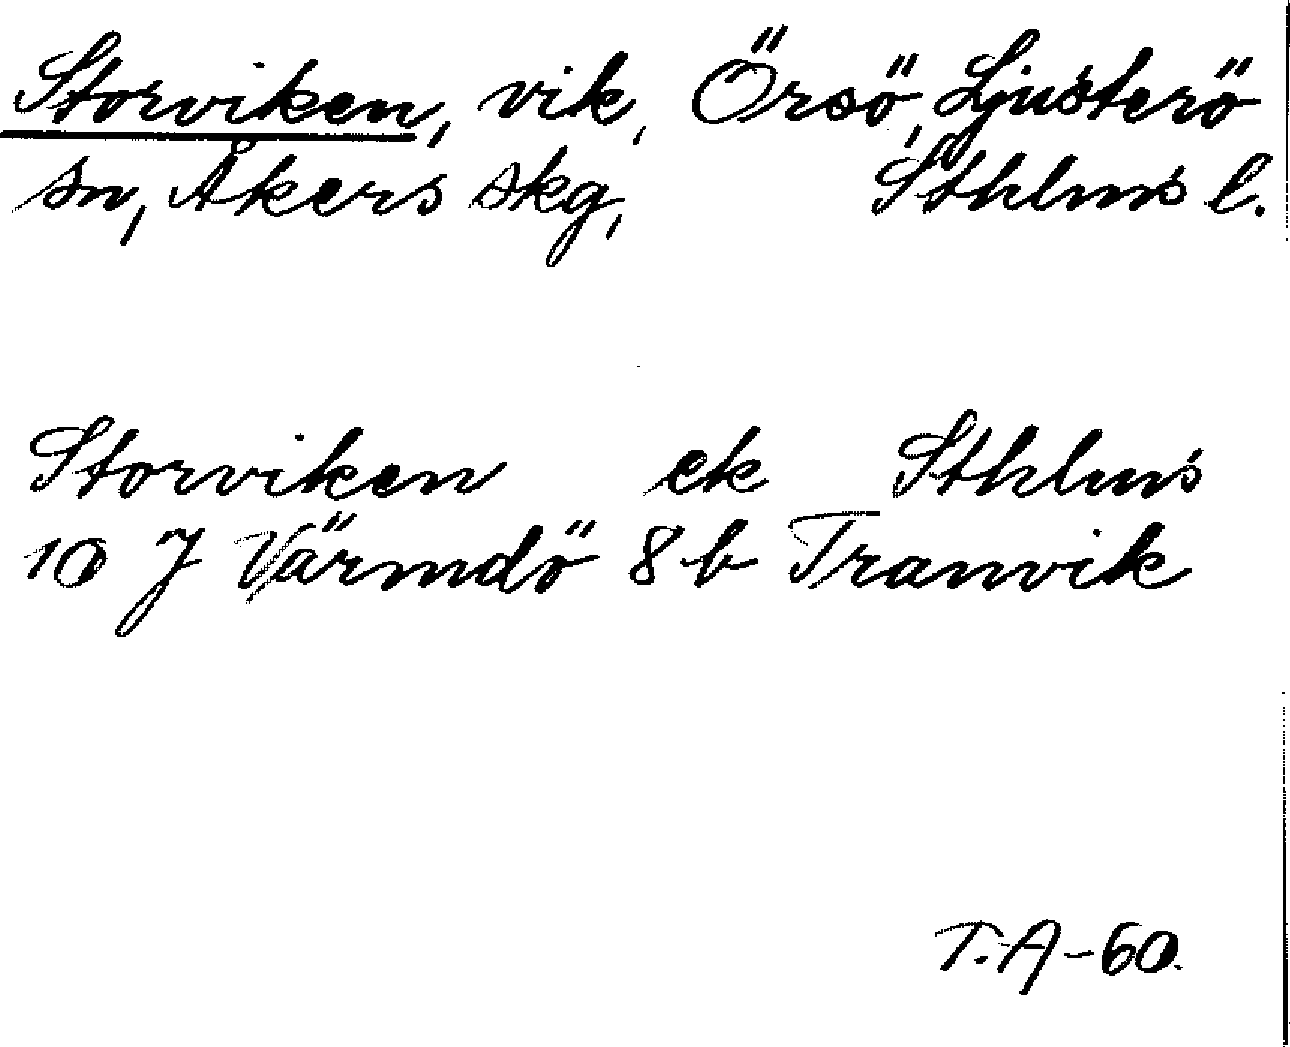 Storviken, vik, Örsö, Ljusterö
sn, Åkers skg, Sthlms l.
Storviken ek Sthlms
10 J Värmdö 8 b Tranvik
T.A-60.